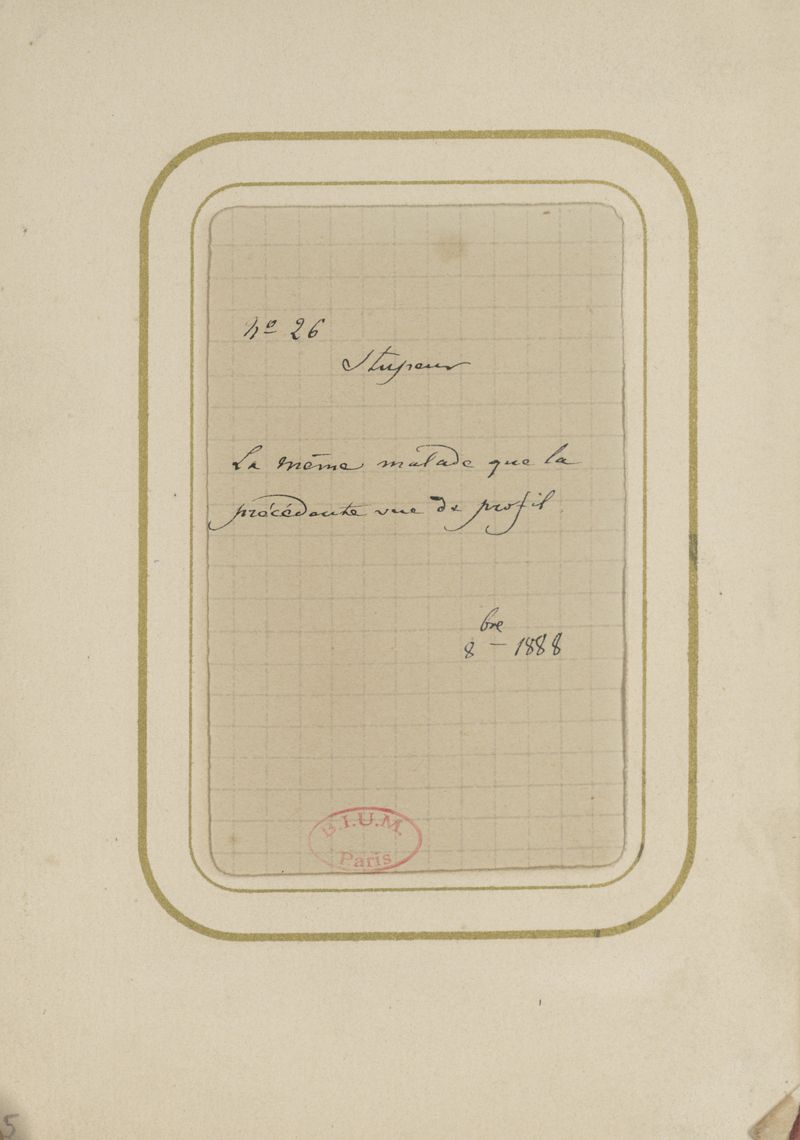 nº 26
Stupeur
La même malade que la
précédente vue de profil.
8bre 1888
B.I.U.M.
Paris
5